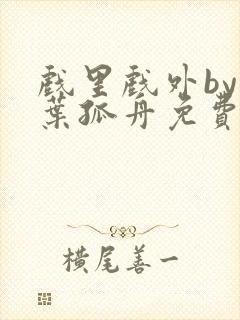 戲里戲外by
葉孤舟免費
橫尾善一